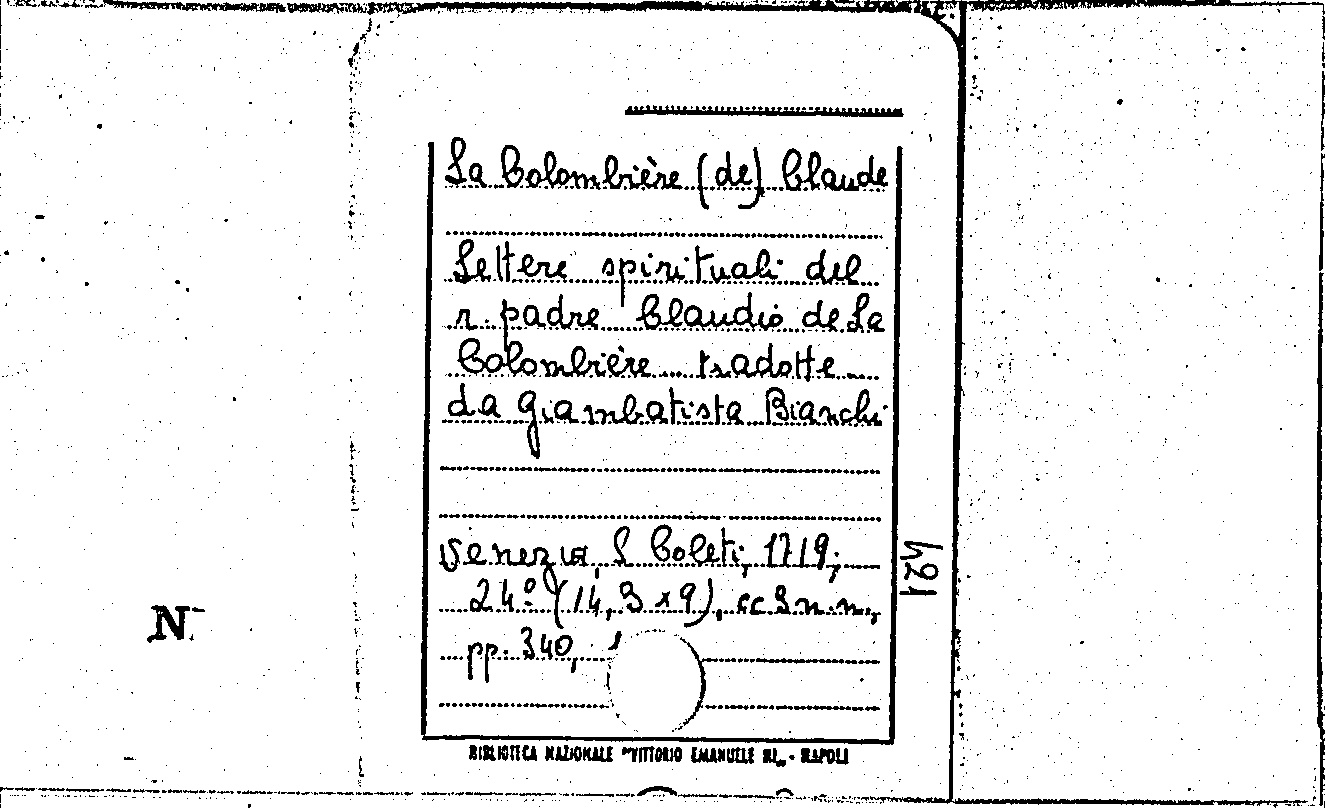 La Colombière (de) Claude
Lettere spirituali del
r. padre Claudio de La
Colombière... tradotte...
da Giambatista Bianchi
Venezia, S. Coleti, 1719;
24º (14,3 x 9), cc 3 n.n.,
pp. 340,
BIBLIOTECA NAZIONALE "VITTORIO EMANUELE III" - NAPOLI
N